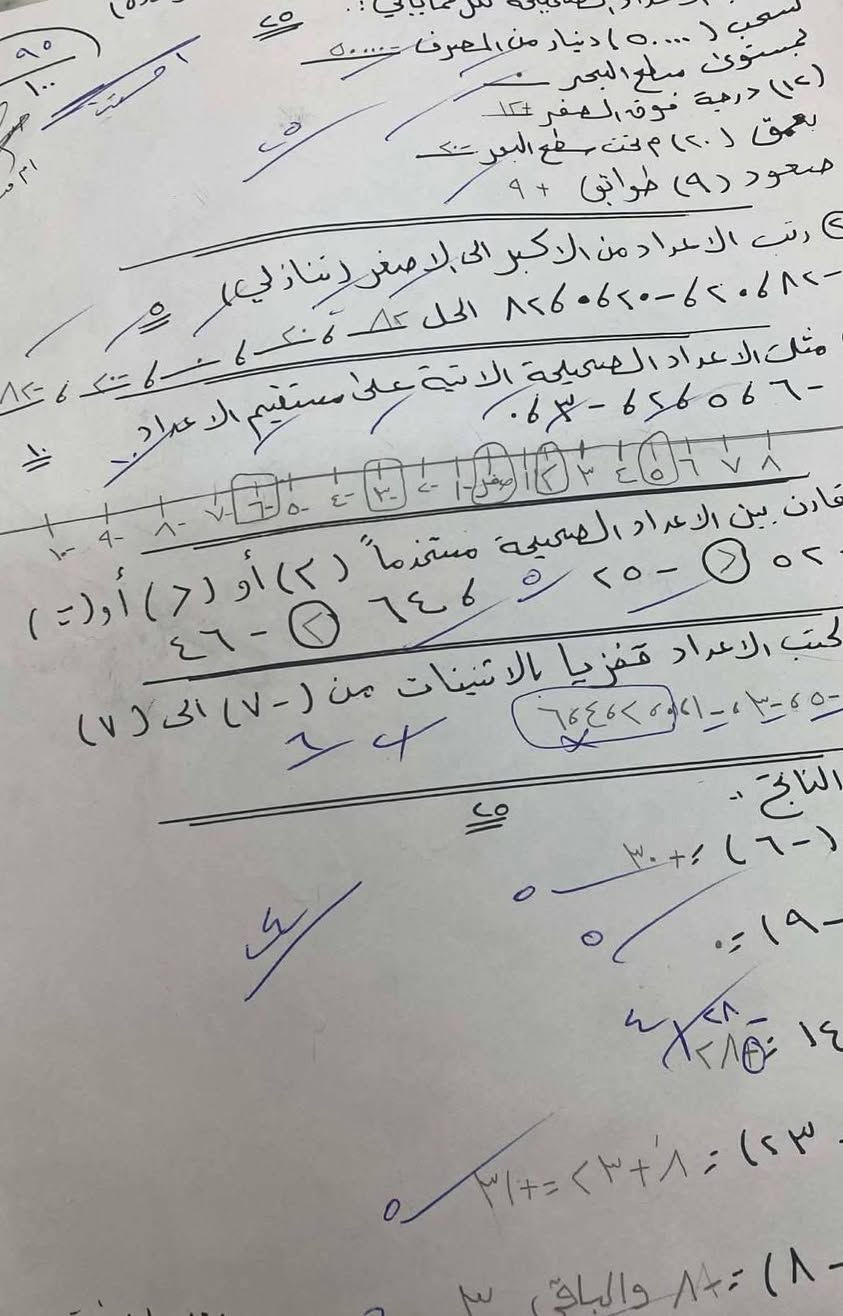 لسحب (٥٠٠٠٠) دينار من المصرف -٥٠٠٠٠
لمستوى سطح البحر ٠
(١٢) درجة فوق الصفر +١٢
بعمق (٢٠) م تحت سطح البحر -٢٠
صعود (٩) طوابق +٩
٢٥
٩٥
١٠٠
احسنت
٢٥
رتب الاعداد من الاكبر الى الاصغر (تنازلي)
-٨٢ ، ٢٠ ، -٢٠ ، ٠ ، ٨٢ الحل ٨٢ ، ٢٠ ، ٠ ، -٢٠ ، -٨٢
٥
مثل الاعداد الصحيحة الاتية على مستقيم الاعداد
-٦ ، ٥ ، ٢ ، -٣ ، ٠
١٠
-١٠ -٩ -٨ -٧ -٦ -٥ -٤ -٣ -٢ -١ صفر ١ ٢ ٣ ٤ ٥ ٦ ٧ ٨
قارن بين الاعداد الصحيحة مستخدماً (>) أو (<) أو (=)
٥٢ > -٢٥ ، ٦٤ > -٤٦
٥
اكتب الاعداد قفزيا بالاثنينات من (-٧) الى (٧)
-٥ ، -٣ ، -١ ، ٠ ، ٢ ، ٤ ، ٦
الناتج :
٢٥
(-٦) = +٣٠
٥
-١٩ = ٠
٥
-٢٨
١٤ = +٢٨
٤
٢٣) = ٨+٢٣=+٣١
٥
-٨) = +٨ والباقي ٣